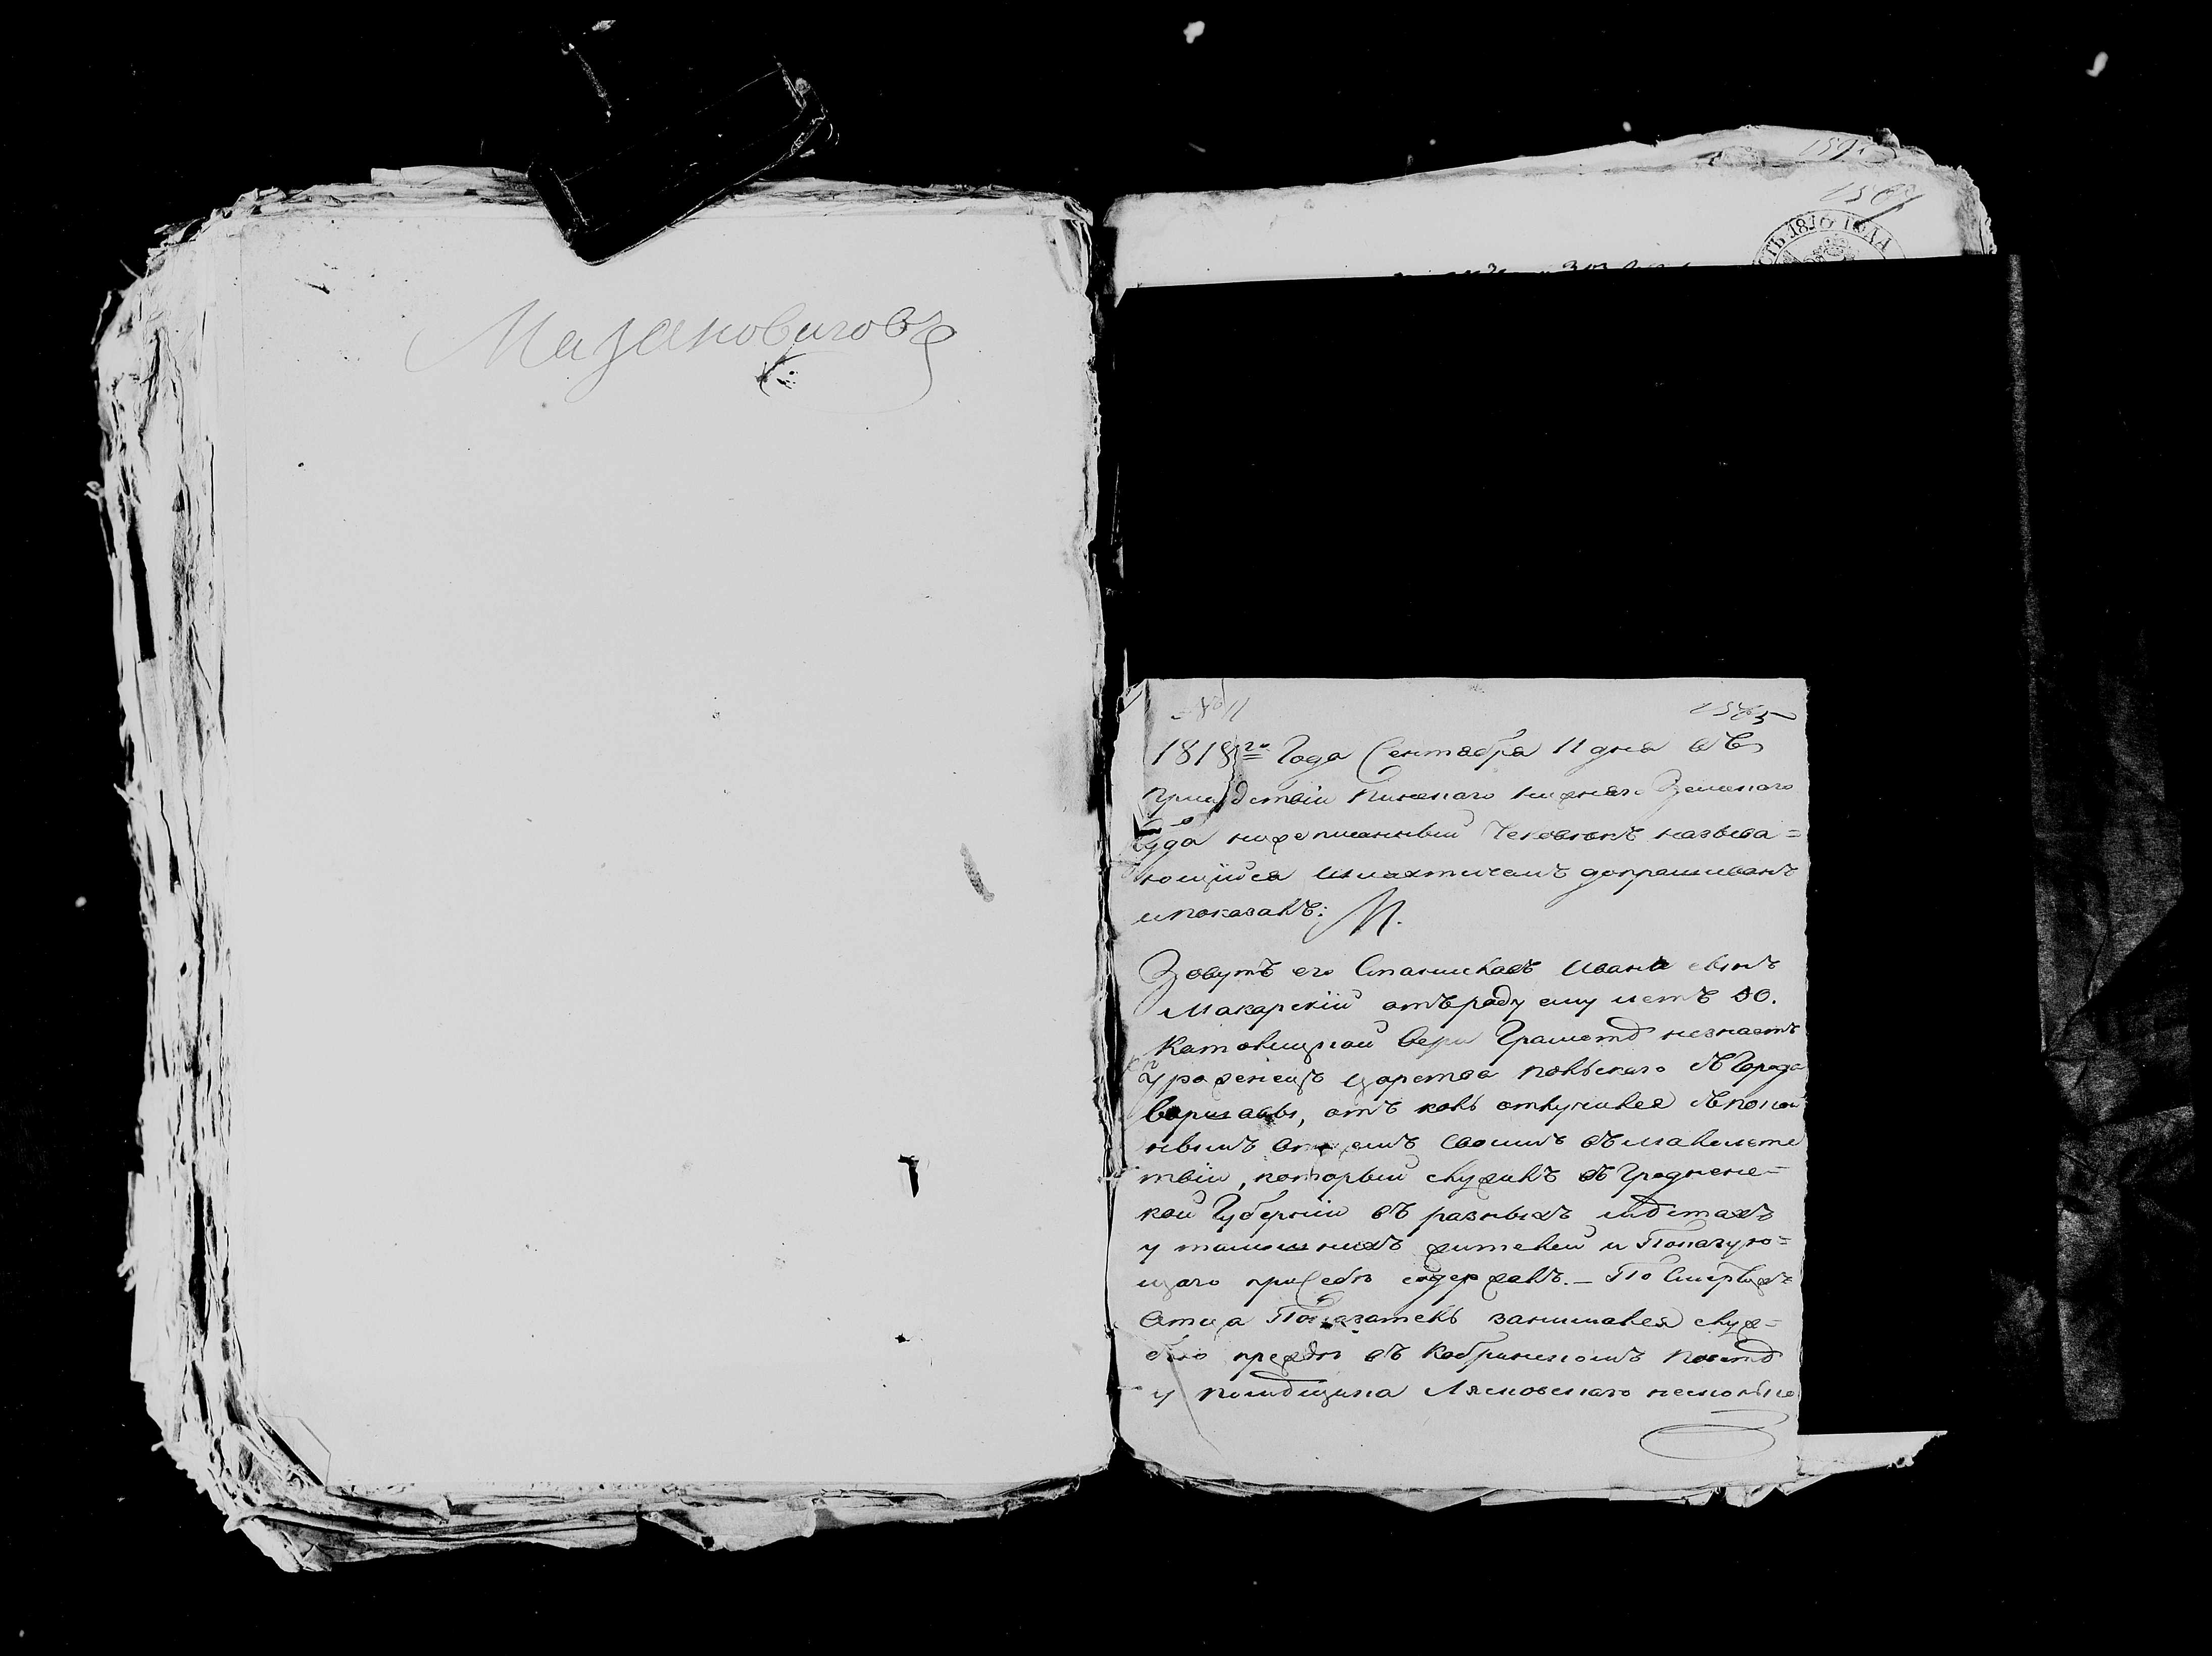 Мазановичовъ
1568
СТЬ 1816 ГОДА
№ 11
1818го Года Сентября 11 дня въ
присудствіи Пинскаго нижняго Земскаго
Суда нижеписанный Человекъ называ=
ющийся шляхтичемъ допрашиванъ
и показалъ:
Зовутъ его Станиславъ Ивановъ сынъ
Макарскій отъ роду ему летъ 50.
Католицкой веры Грамотѣ незнаетъ
Уроженецъ царства Польскаго съ Города
Варшавы, отъ коль отлучился съ покой
нымъ отцемъ своимъ въ малолетс
твіи, который служилъ въ Гродненс-
кой Губерніи въ разныхъ мѣстахъ
у тамошнихъ жителей и Показую=
щаго при себѣ содержалъ.- По Смерти
Отца Показатель занимался служ=
бою прежде въ Кобринскомъ Поветѣ
у помѣщика Лясковскаго несколько